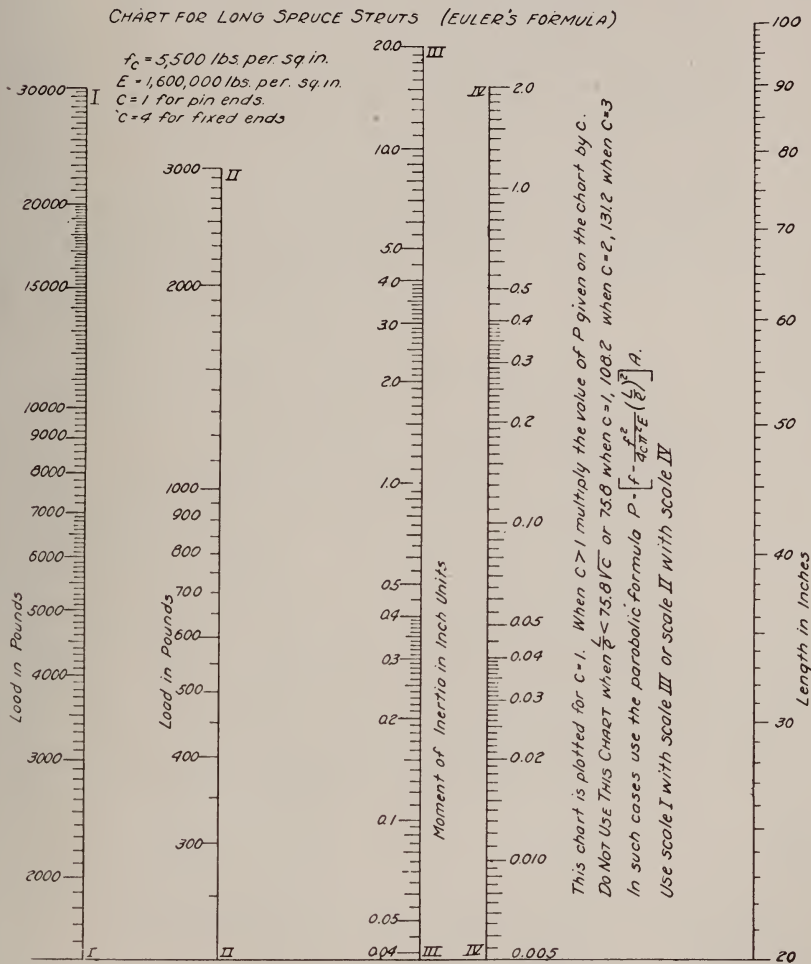 CHART FOR LONG SPRUCE STRUTS (EULER'S FORMULA)
fc = 5,500 lbs. per sq in.
E = 1,600,000 lbs. per. sq. in.
C = 1 for pin ends.
C = 4 for fixed ends
I
30000
20000
15000
10000
9000
8000
7000
6000
5000
4000
3000
2000
I
Load in Pounds
II
3000
2000
1000
900
800
700
600
500
400
300
II
Load in Pounds
III
20.0
10.0
5.0
4.0
3.0
2.0
1.0
0.5
0.4
0.3
0.2
0.1
0.05
0.04
III
Moment of Inertia in Inch Units
IV
2.0
1.0
0.5
0.4
0.3
0.2
0.10
0.05
0.04
0.03
0.02
0.010
0.005
IV
This chart is plotted for C=1. When C>1 multiply the value of P given on the chart by C.
DO NOT USE THIS CHART when L/ρ < 75.8√C or 75.8 when C=1, 108.2 when C=2, 131.2 when C=3
In such cases use the parabolic formula P = [f - f²/4Cπ²E (L/ρ)²] A.
Use scale I with scale III or scale II with scale IV
100
90
80
70
60
50
40
30
20
Length in Inches